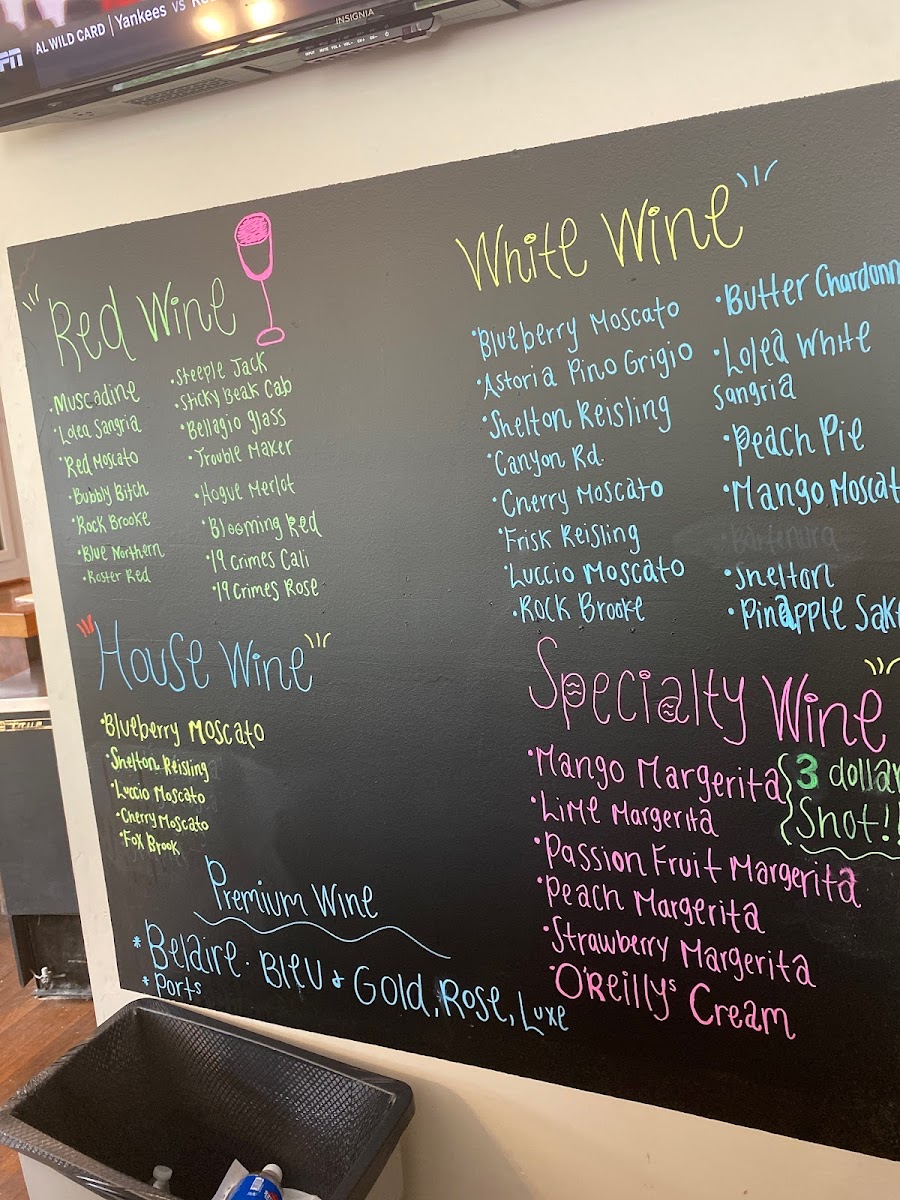 AL WILD CARD | Yankees vs
INSIGNIA
Red Wine
• Muscadine
• Lolea Sangria
• Red Moscato
• Bubbly Bitch
• Rock Brooke
• Blue Northern
• Roster Red
• Steeple Jack
• Sticky Beak Cab
• Bellagio glass
• Trouble Maker
• Hogue Merlot
• Blooming Red
• 19 Crimes Cali
• 19 Crimes Rose
White Wine
• Blueberry Moscato
• Astoria Pino Grigio
• Shelton Reisling
• Canyon Rd.
• Cherry Moscato
• Frisk Reisling
• Luccio Moscato
• Rock Brooke
• Butter Chardonn
• Lolea White
Sangria
• Peach Pie
• Mango Moscat
Bartenura
• Shelton
• Pineapple Sak
House Wine
• Blueberry Moscato
• Shelton Reisling
• Luccio Moscato
• Cherry Moscato
• Fox Brook
Premium Wine
* Belaire · Bleu & Gold, Rose, Luxe
* Ports
Specialty Wine
• Mango Margerita
• Lime Margerita
• Passion Fruit Margerita
• Peach Margerita
• Strawberry Margerita
• O'Reillys Cream
3 dollar
Shot!!